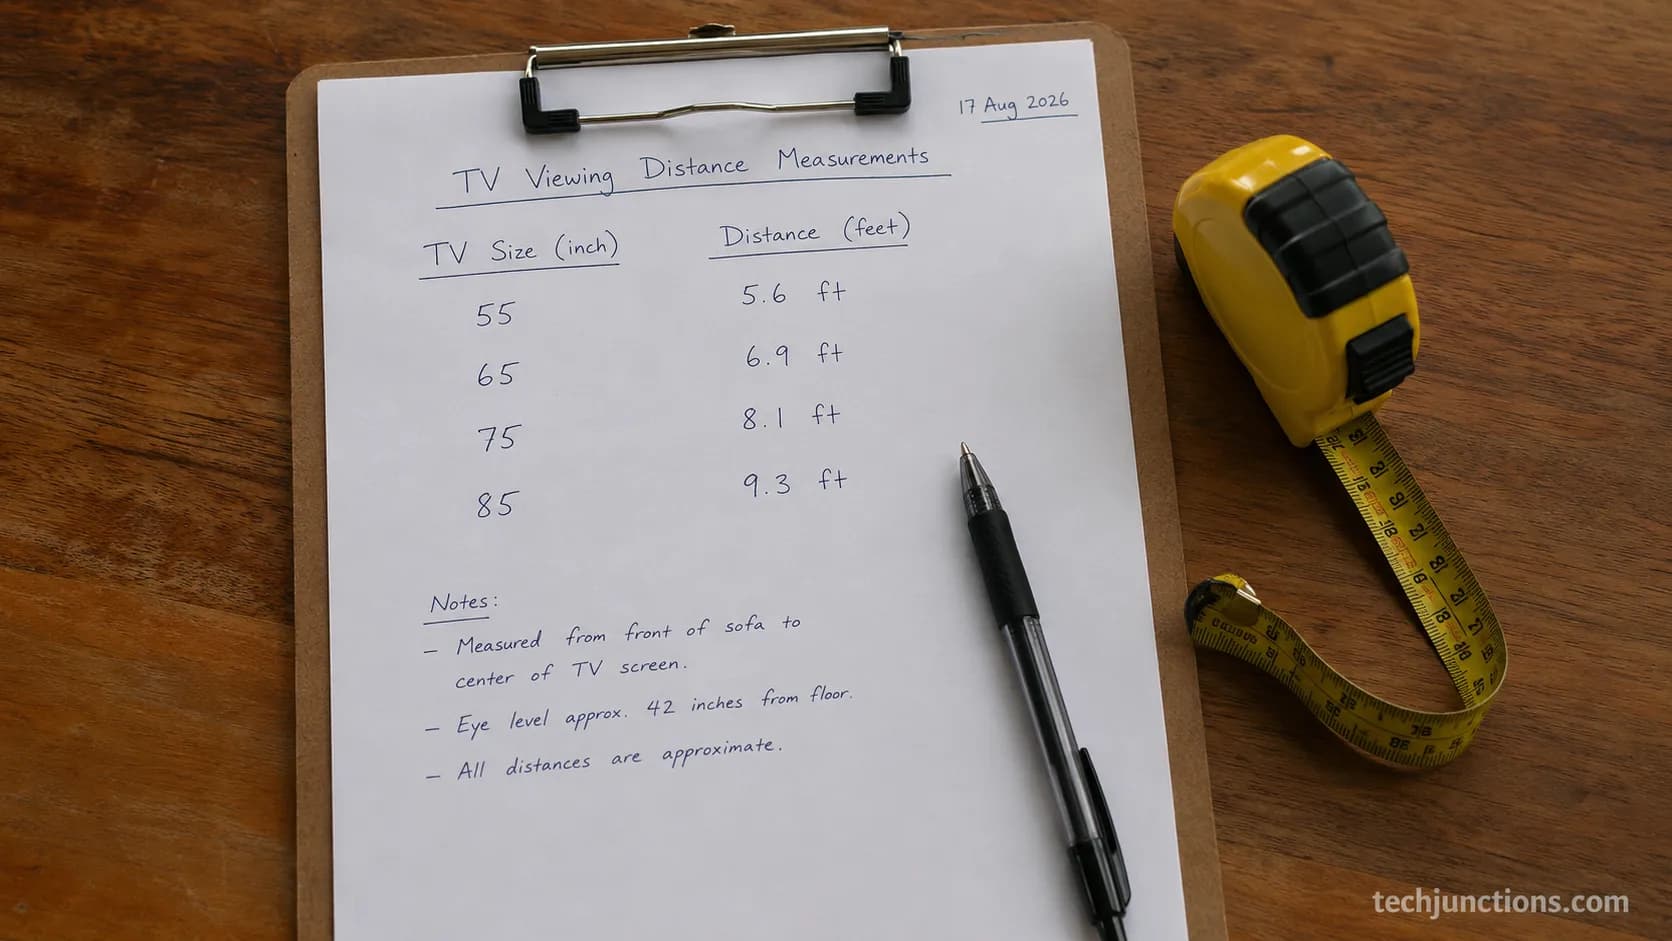 17 Aug 2026
TV Viewing Distance Measurements
TV Size (inch) Distance (feet)
55 5.6 ft
65 6.9 ft
75 8.1 ft
85 9.3 ft
Notes:
– Measured from front of sofa to
center of TV screen.
– Eye level approx. 42 inches from floor.
– All distances are approximate.
techjunctions.com